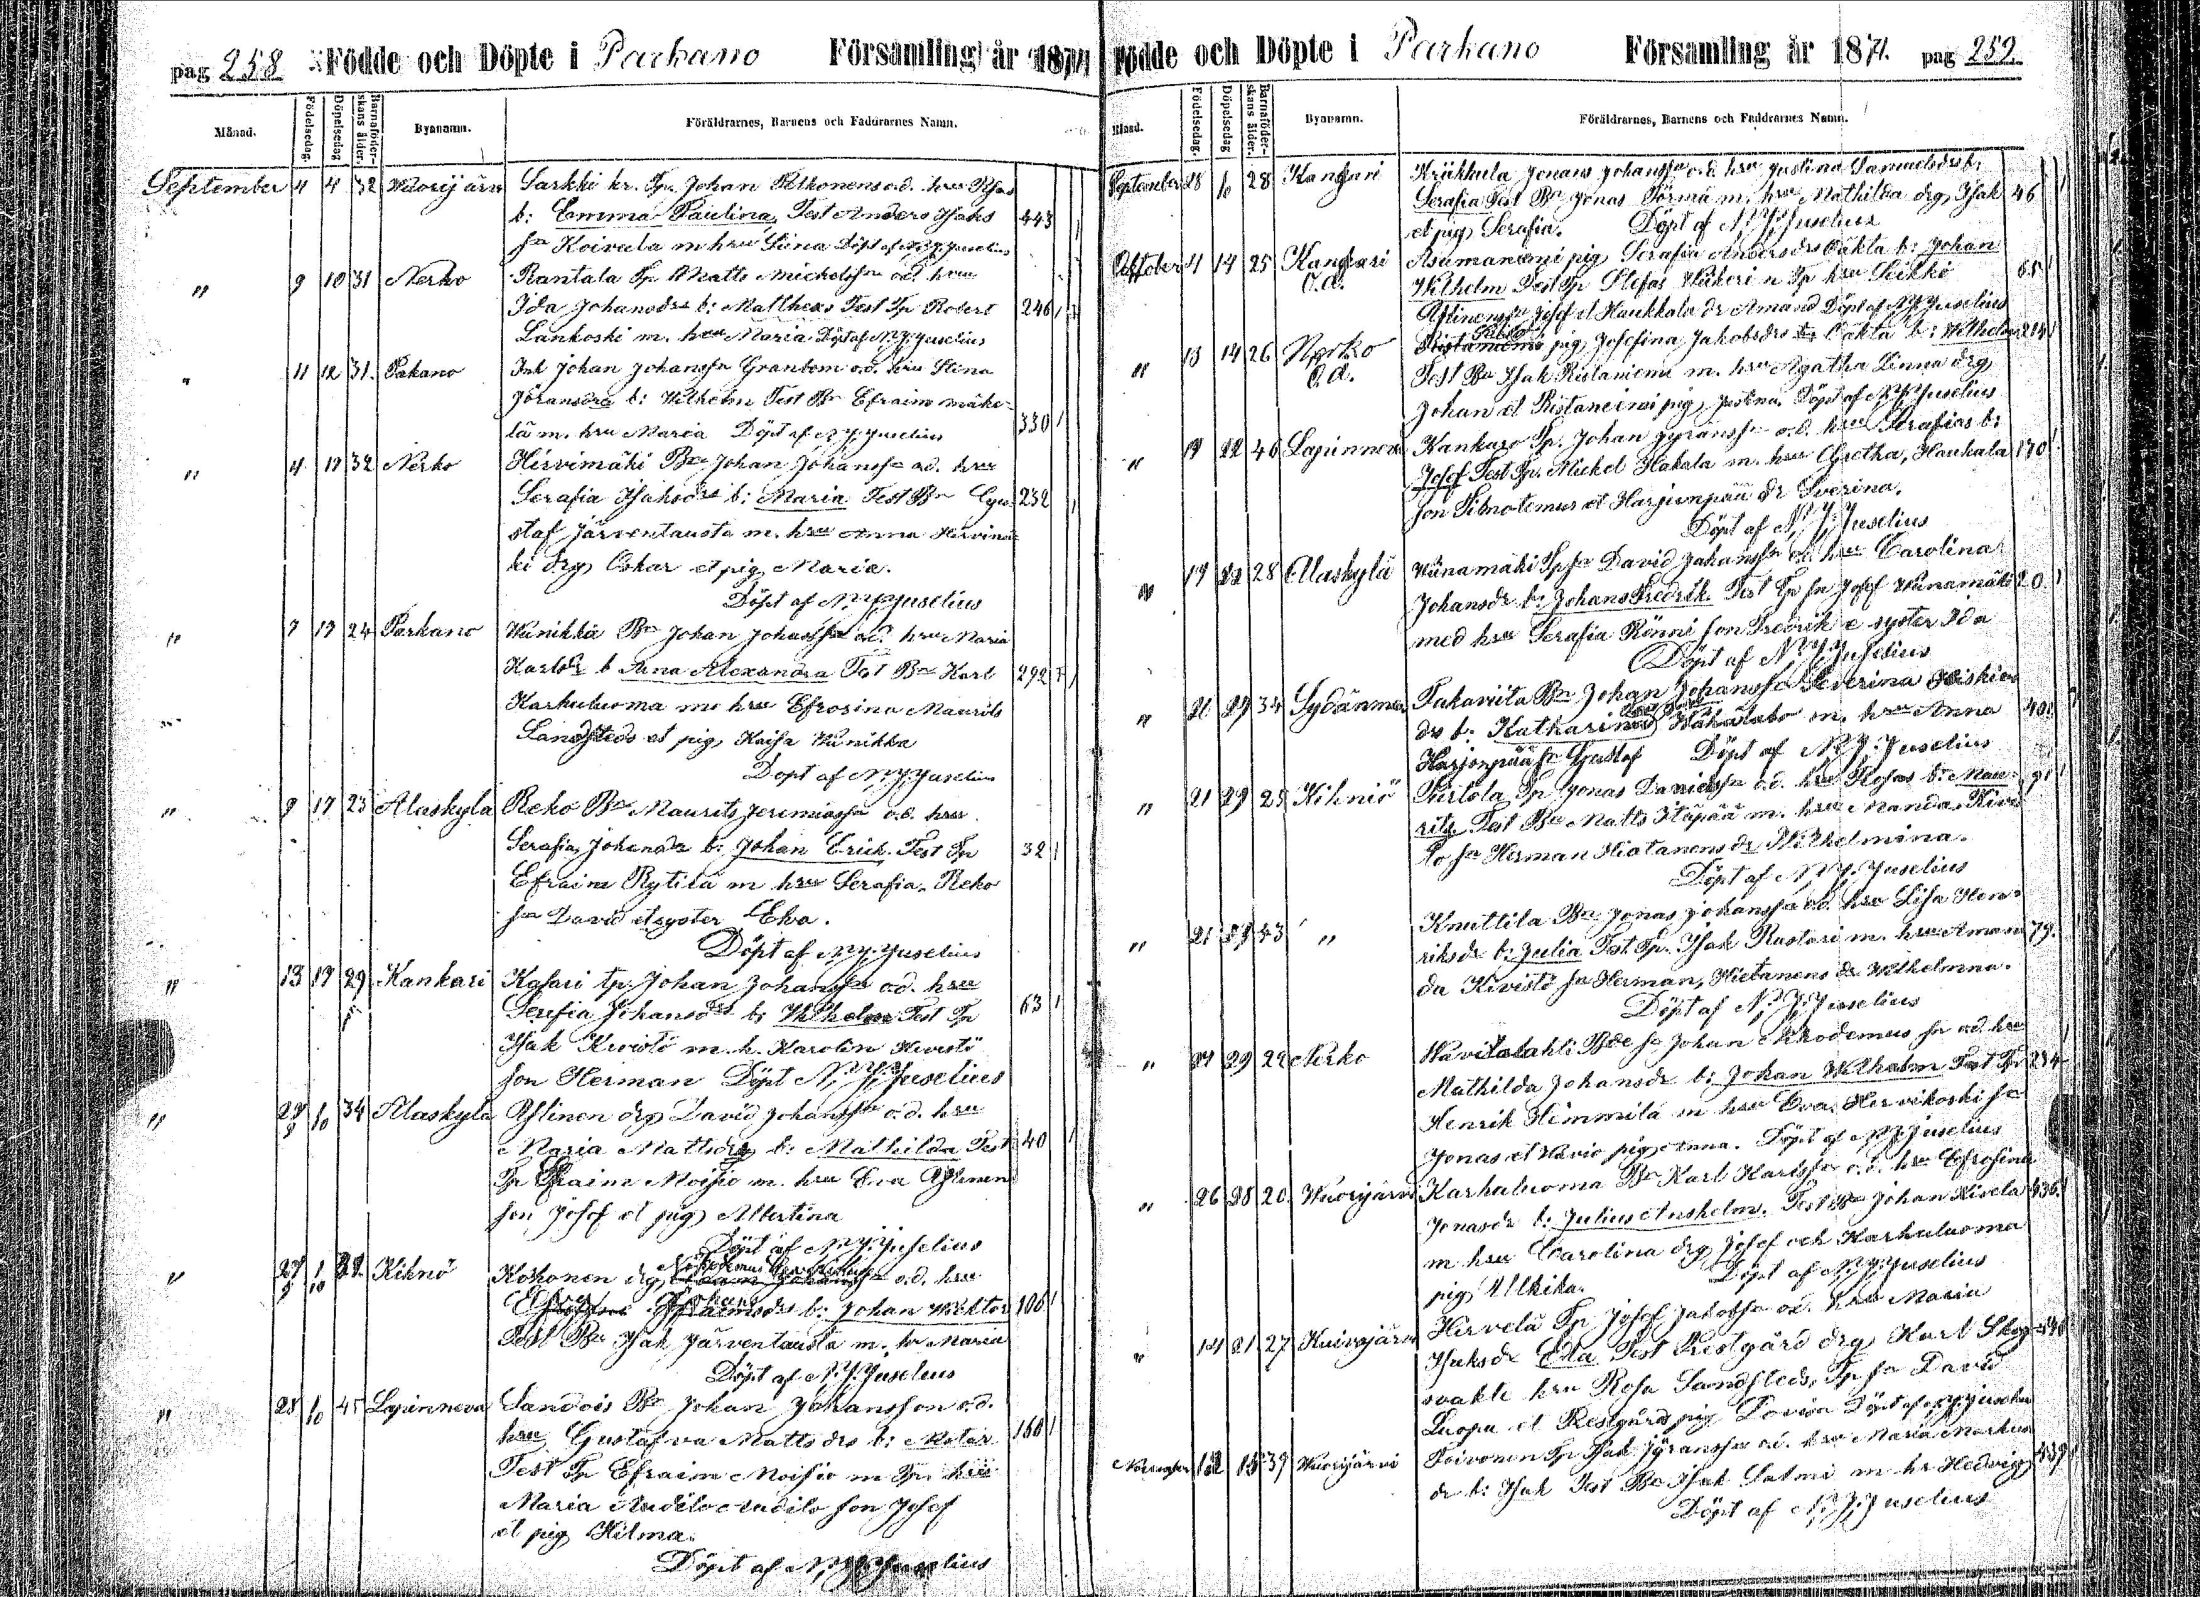 pag 258 Födde och Döpte i Parkano Församling år 1871
Månad. Födelsedag. Döpelsedag Barnaföder-skans ålder. Byanamn. Föräldrarnes, Barnens och Faddrarnes Namn.
September 4 4 32 Wuorijärvi Sarkki kr. Tp. Johan
b: Emma Paulina, Test Anders Isaks 443
sn Koivula m hru Stina Döpt af N. J. Juselius
" 9 10 31 Nerko Rantala Tp Matts Michelssn o.d. hru
Ida Johansdr b: Mattheas Test Tp Robert 246
Lankoski m. hru Maria. Döpt af N. J. Juselius
" 11 12 31. Pakano Johan Johanssn Granbom o.d. hru Stina
b: Wilhelm Test Bn Efraim mäke-
lä m. hru Maria Döpt af N. J. Juselius 330
" 4 19 32 Nerko Hirvimäki Bn Johan Johanssn o.d. hru
Serafia Isaksdr b: Maria Test Bn Gu- 232
staf Järventausta m. hru Anna Hirvimä-
ki drg Oskar et pig Maria.
Döpt af N. J. Juselius
" 7 19 24 Parkano Wunikka Bn Johan Johanssn o.d. hru Maria
Karlsdr b Anna Alexandra Test Bn Karl 292
Karhuluoma m hru Efrosina Maurits
Sandsteds et pig Kaisa Wunikka
Döpt af N. J. Juselius
" 9 17 23 Alaskylä Reko Bn Maurits Jeremiassn o.d. hru
Serafia Johansdr b: Johan Erick. Test Tp 32
Efraim Rytilä m hru Serafia. Reko
sn David et syster Eha.
Döpt af N. J. Juselius
" 13 19 29 Kankari tp. Johan Johanssn o.d. hru
Serafia Johansdr b: Wilhelm Test Tp 63
Isak Kivistö m. h. Karolin Kivistö
son Herman Döpt N. J. Juselius
" 27/9 1/10 34 Alaskylä drg David Johanssn o.d. hru
Maria Mattsdr b: Mathilda Test 40
Tp Efraim Moisio m. hru Eva
son Josef et pig Albertina
Döpt af N. J. Juselius
" 27/9 1/10 Kihnö Kokonen drg o.d. hru
b: Johan Wiktor 106
Test Bn Isak Järventausta m. hr Maria
Döpt af N. J. Juselius
" 28 1/10 45 Lapinneva Sandois Bn Johan Johansson o.d.
hru Gustafva Matts drs b: 160
Test Tp Efraim Moisio m Tp. hru
Maria Andilo son Josef
et pig Hilma.
Döpt af N. J. Juselius
Födde och Döpte i Parkano Församling år 1871. pag 259.
Månad. Födelsedag. Döpelsedag Barnaföder-skans ålder. Byanamn. Föräldrarnes, Barnens och Faddrarnes Namn.
September 28 1/10 28 Kankari Jonas Johanssn o.d. hru Justina Samuelsdr b:
Serafia Test Bn Jonas m. hru Mathilda drg Isak 46
et pig Serafia. Döpt af N. J. Juselius
Oktober 11 14 25 Kankari Asumaniemi pig Serafia Andersdr Oäkta b: Johan
O.ä. Wilhelm Test Tp Stefas n Tp hru 65
Josef et Haukkala dr Amand Döpt af N. J. Juselius
" 13 14 26 Nerko pig Josefina Jakobsdr Oäkta b: Wilhelm 214
O.ä. Test Bn Isak Ristaniemi m. hru Agatha Linna drg
Johan et Ristaniemi pig Justina. Döpt af N. J. Juselius
" 19 22 46 Lapinneva Kankare Tp. Johan o.d. hru Serafias b:
Josef Test Tp. Mickel Hakala m. hru Gretha, Haukala 170
son et Harjunpää dr Sverina.
Döpt af N. J. Juselius
" 19 22 28 Alaskylä Wiinamäki Tp sn David Johanssn o.d. hru Carolina
Johansdr b: Johans Fredrik. Test Tp sn Josef Wiinamäki 20
med hru Serafia Rönni son Fredrik e syster Ida
Döpt af N. J. Juselius
" 21 29 34 Sydänmaa Bn Johan Johanssn Severina Hiskias
dr b: Katharina m. hru Anna 401
Harjonpää sn Gustaf Döpt af N. J. Juselius
" 21 29 29 Kihniö Tp Jonas Davidssn o.d. hru Rosas b: Mau- 91
ritz Test Bn Matts m. hru Manda. Kivis
to sn Herman Hietanens dr Wilhelmina.
Döpt af N. J. Juselius
" 21 29 43 " Knuttila Bn Jonas Johanssn o.d. hru Lisa Hen-
riksdr b: Julia Test Tp. Isak Rastari m. hru Aman 79.
da Kivistö sn Herman, Hietanens dr Wilhelmina.
Döpt af N. J. Juselius
" 27 29 22 Nerko Johan Nikodemus sn o.d. hru
Mathilda Johansdr b: Johan Wilhelm Test Tp 234
Henrik Himmilä m hru Eva, Hirvikoski sn
Jonas et pig Anna. Döpt af N. J. Juselius
" 26 28 20 Wuorijärvi Karhuluoma Bn Karl Karlssn o.d. hru Efrosina
Jonasdr b: Julius Anshelm. Test Bn Johan Kivelä 436
m hru Carolina drg Josef och Karhuluoma
pig Ulrika. Döpt af N. J. Juselius
" 14 21 27 Kuivajärvi Hirvelä Tp Josef Jakobssn o.d. hru Maria
Isaksdr Eda Test Prestgård drg Karl Skog-
svakti hru Rosa Sandsteds, Tp sn David
Luopa et Prestgårds pig Lovisa Döpt af N. J. Juselius
November 12 15 39 Wuorijärvi Toivonen Tp Isak o.d. hru Maria Markus
dr b: Isak Test Bn Isak Salmi m hr Hedvig 439
Döpt af N. J. Juselius